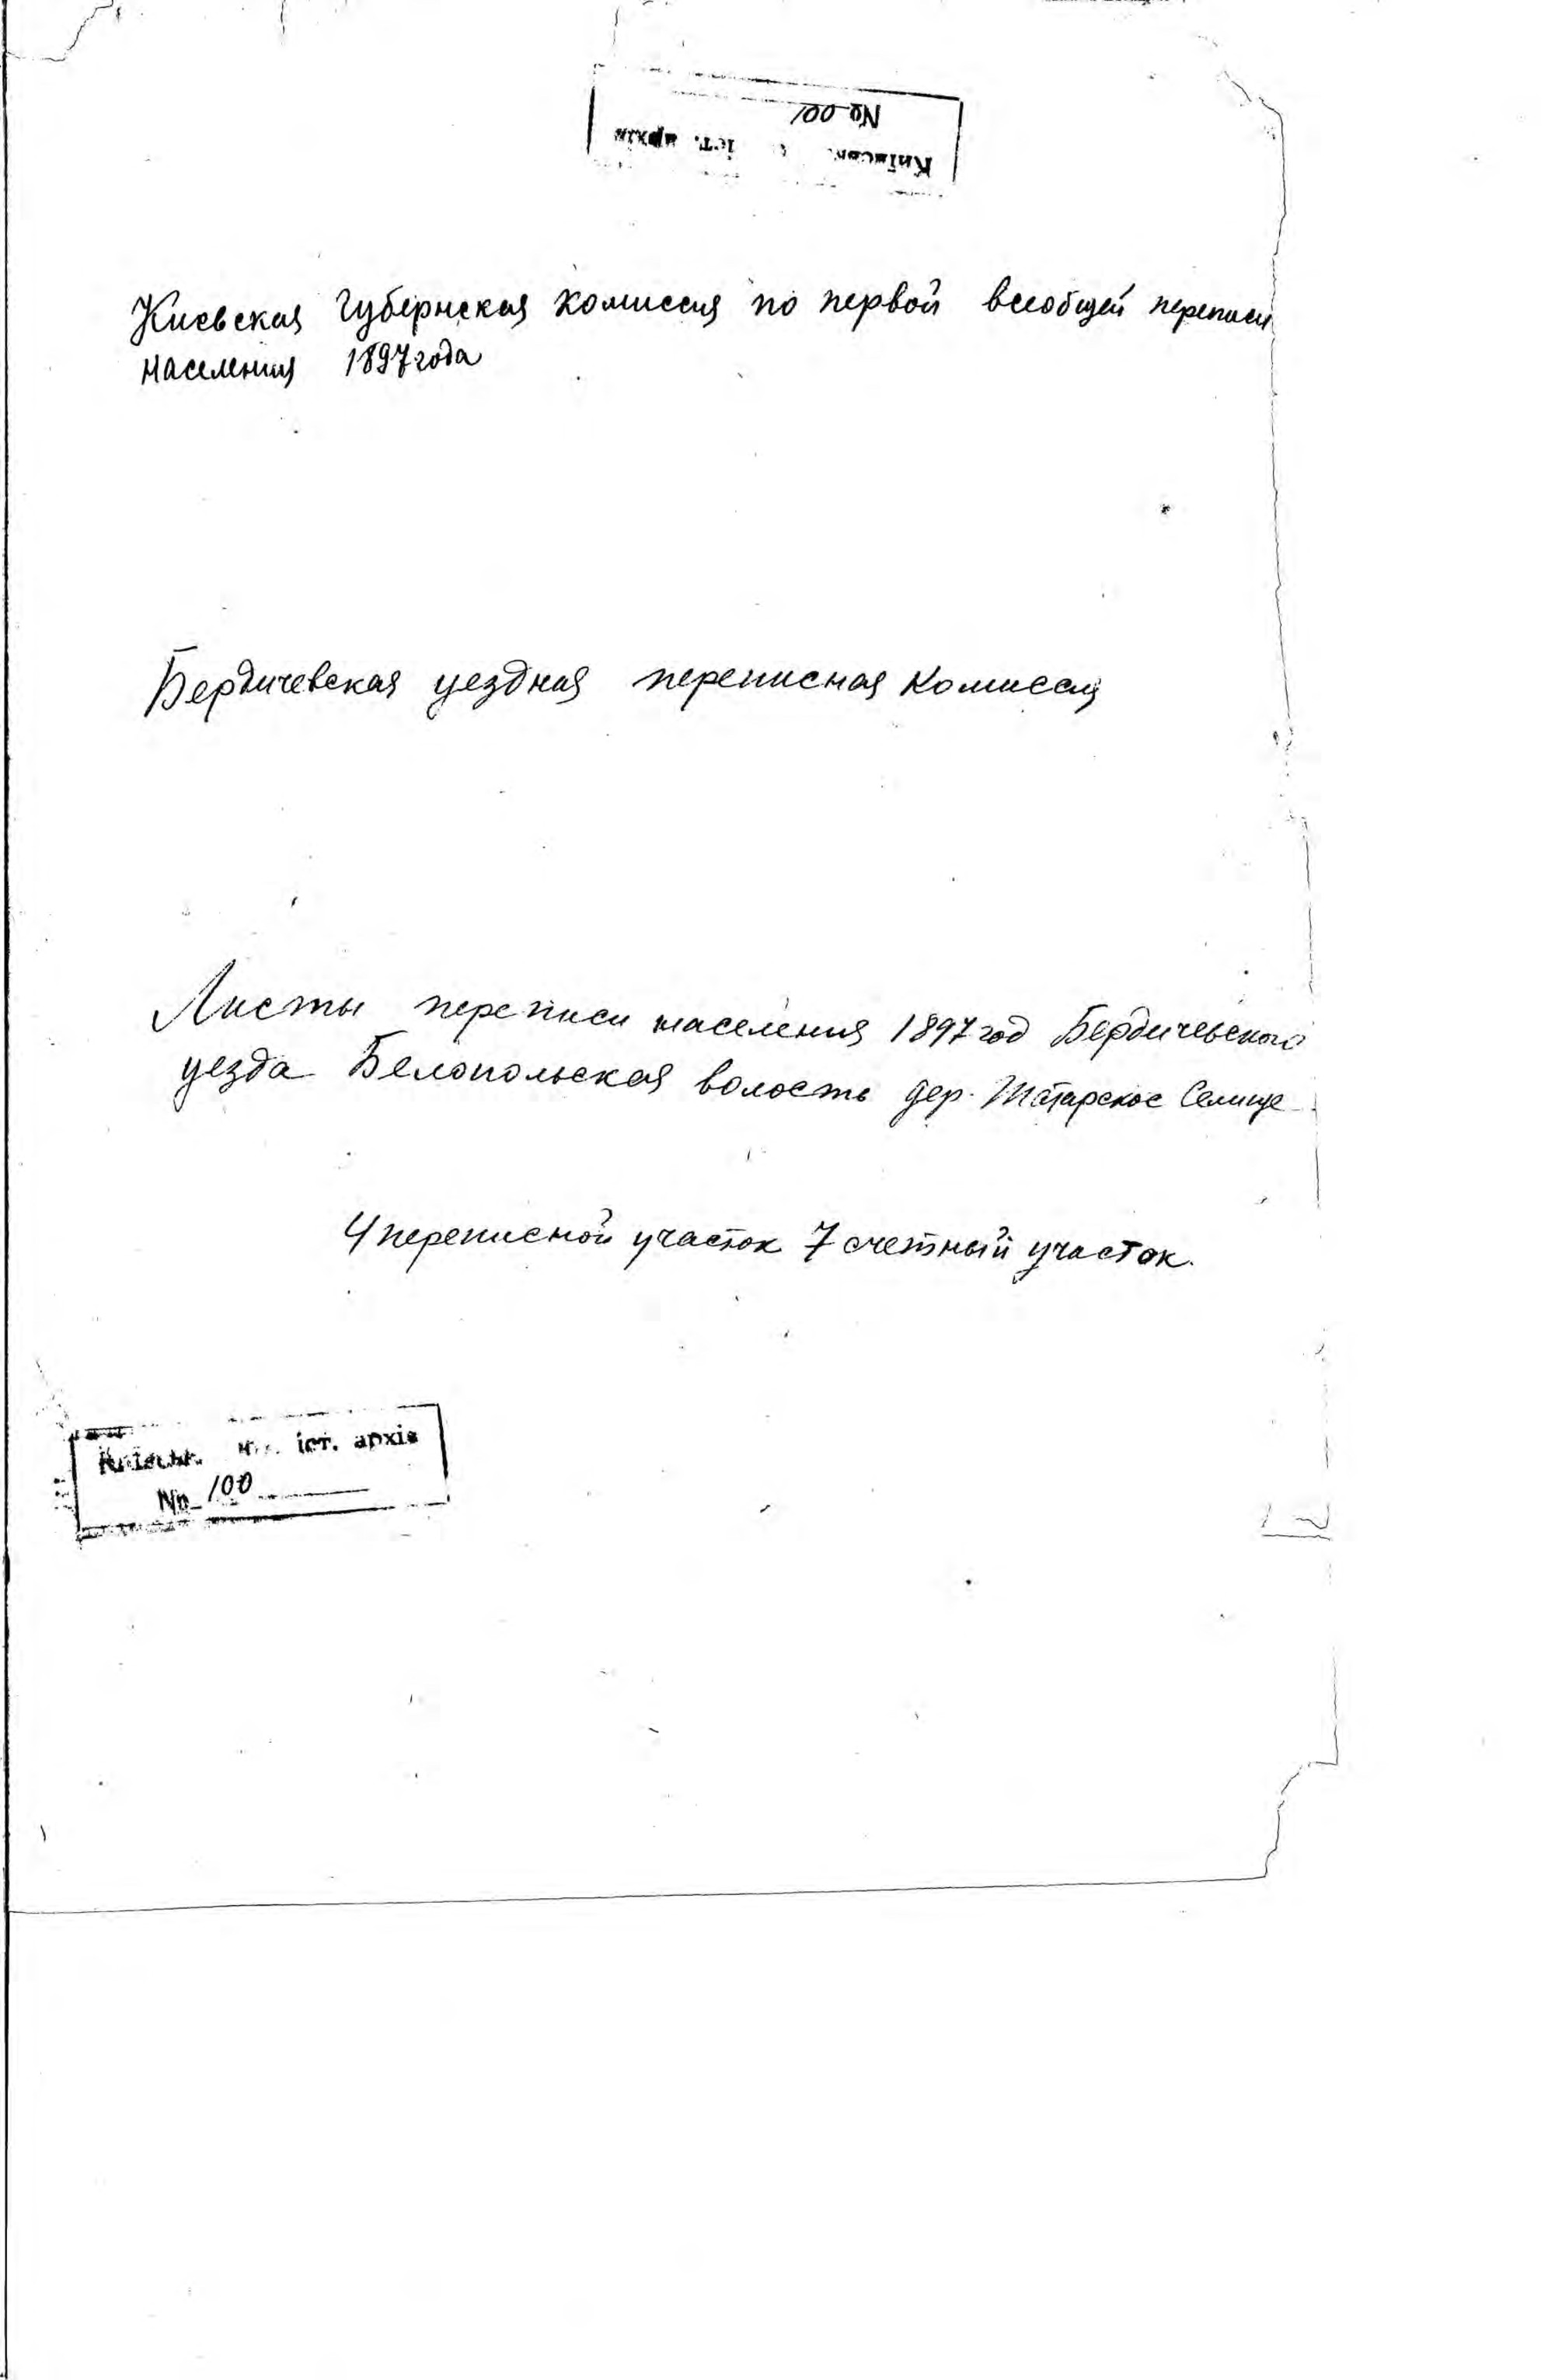 No 001
Київськ. іст. архів
Киевская Губернская комиссия по первой всеобщей переписи
населения 1897 года
Бердичевская уездная переписная комиссия
Листы переписи населения 1897 год Бердичевского
уезда Белопольская волость дер. Татарское Селище
4 переписной участок 7 счетный участок.
Київськ. іст. архів
No 100